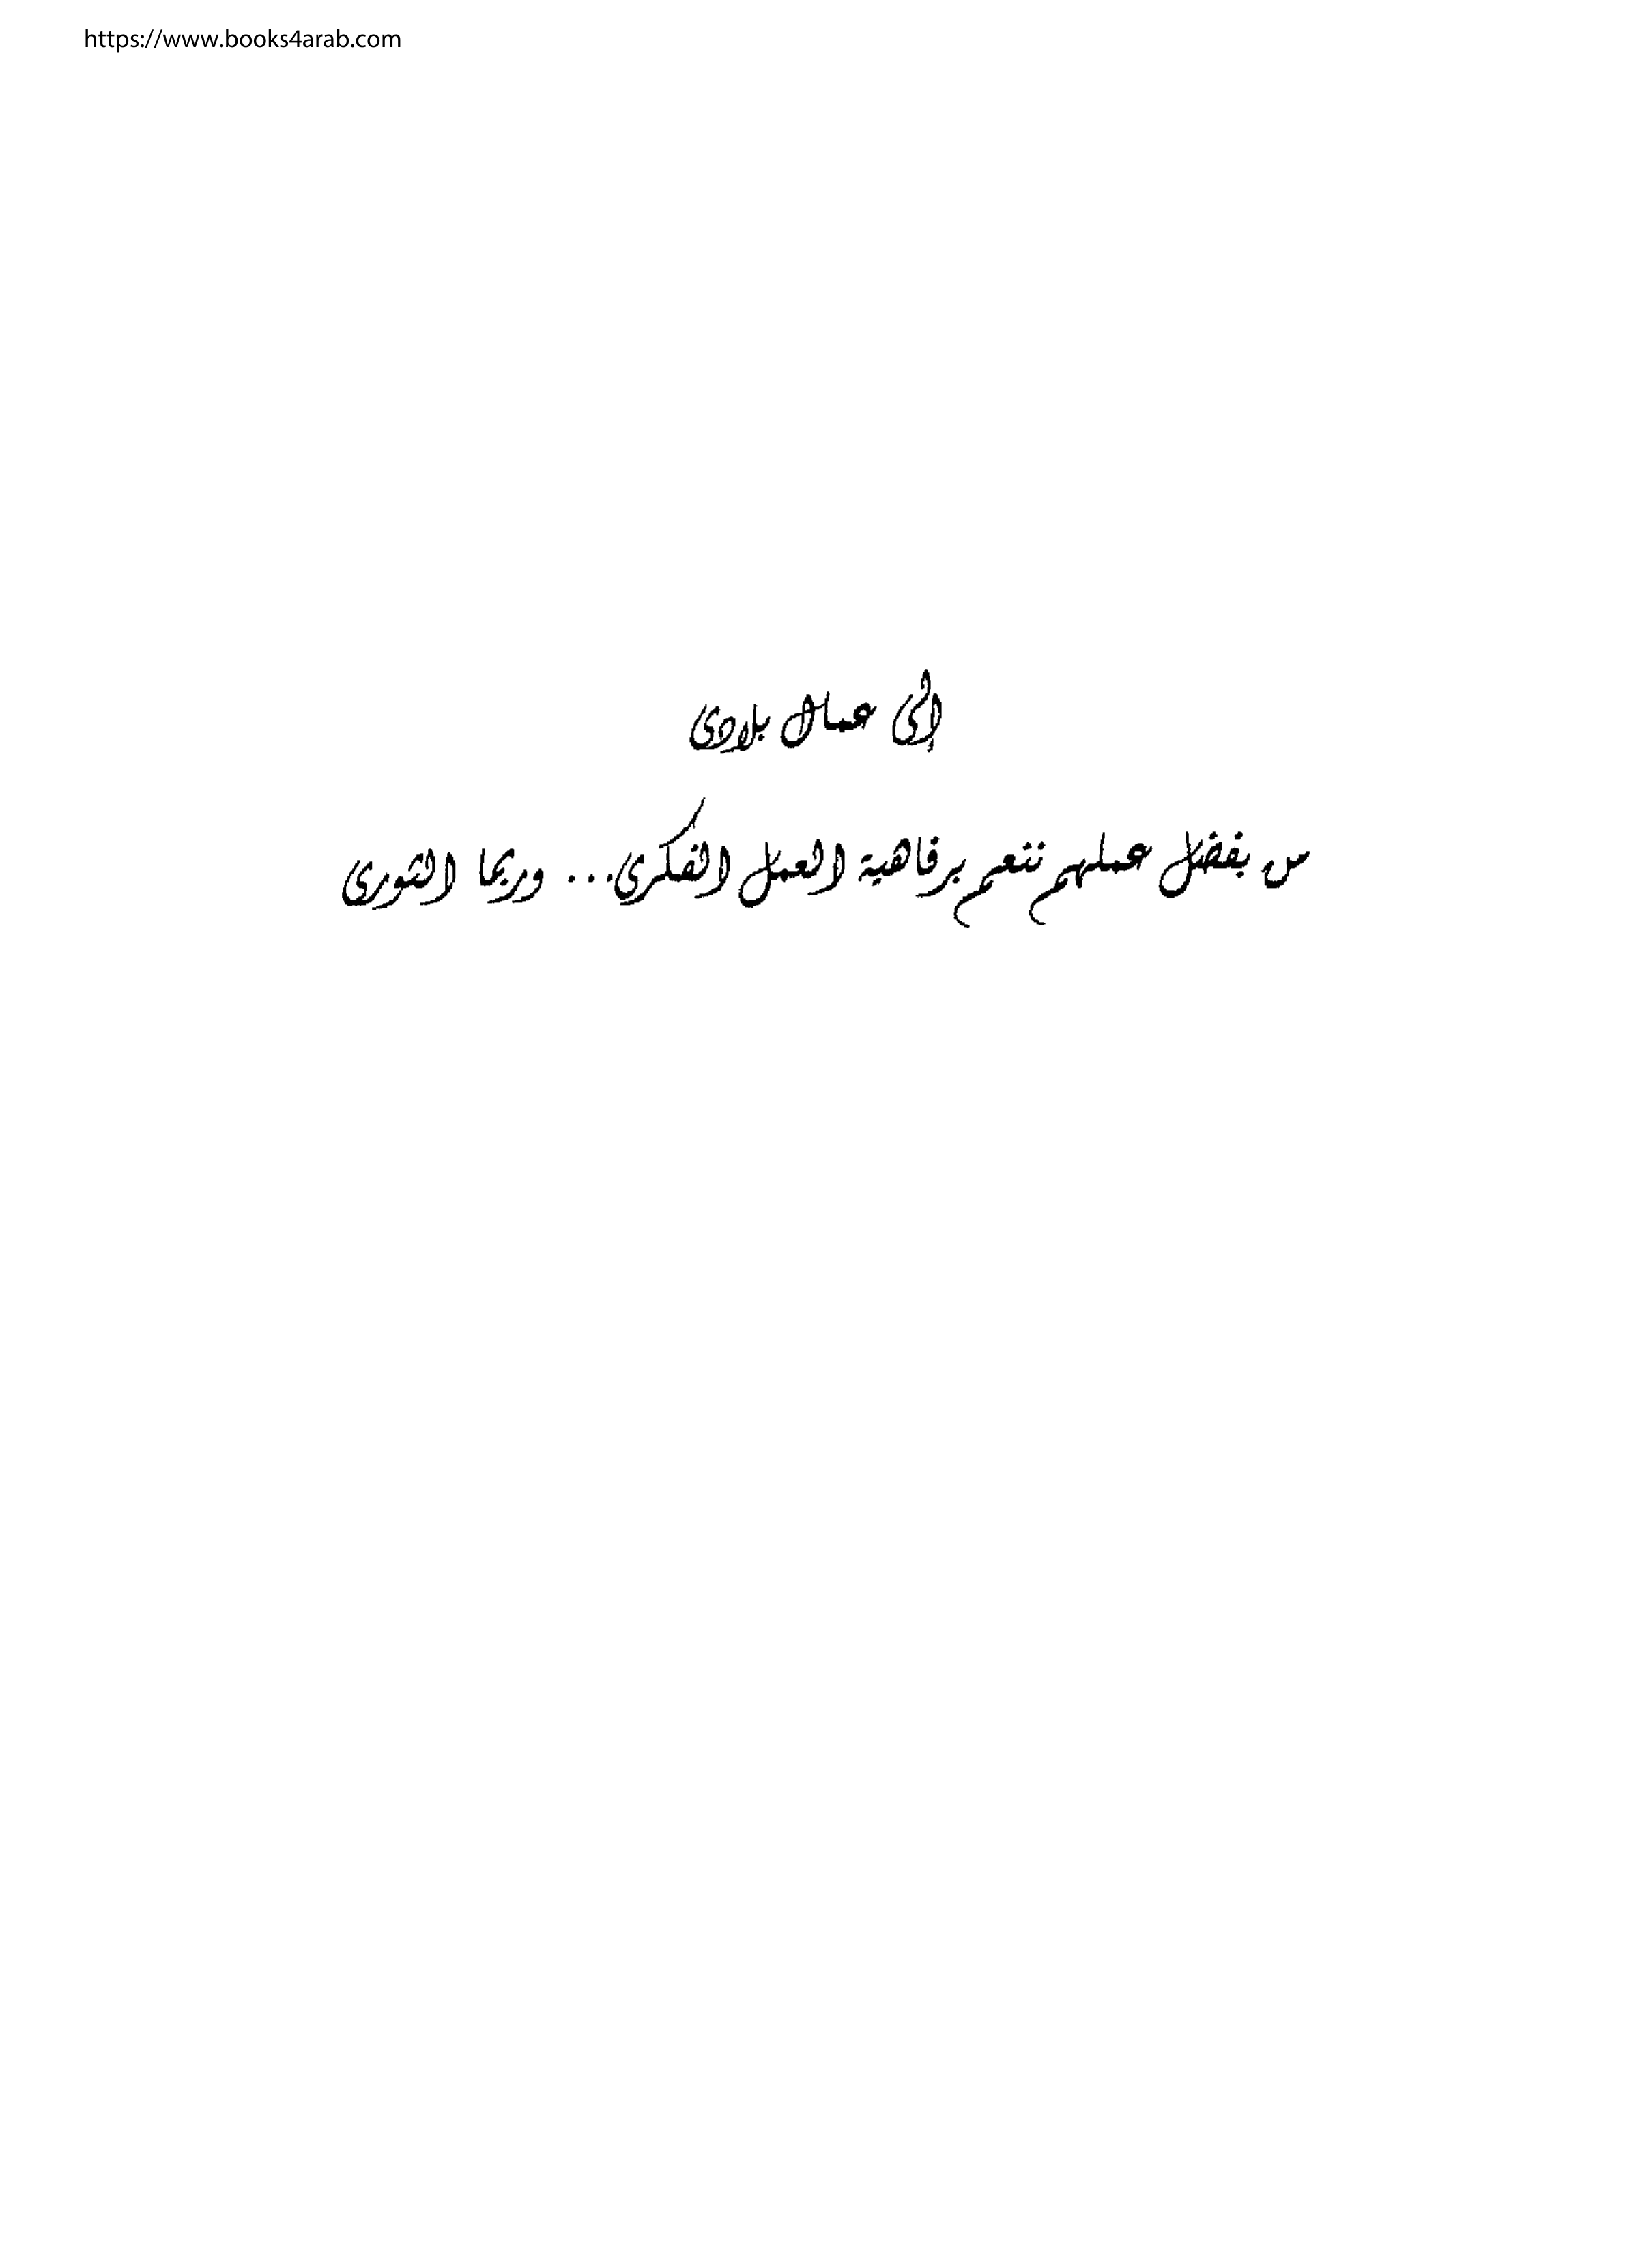 https://www.books4arab.com
إلى عمال بلادى
من بفضل عملهم ننعم برفاهية العمل الفكرى... وربما الثورى